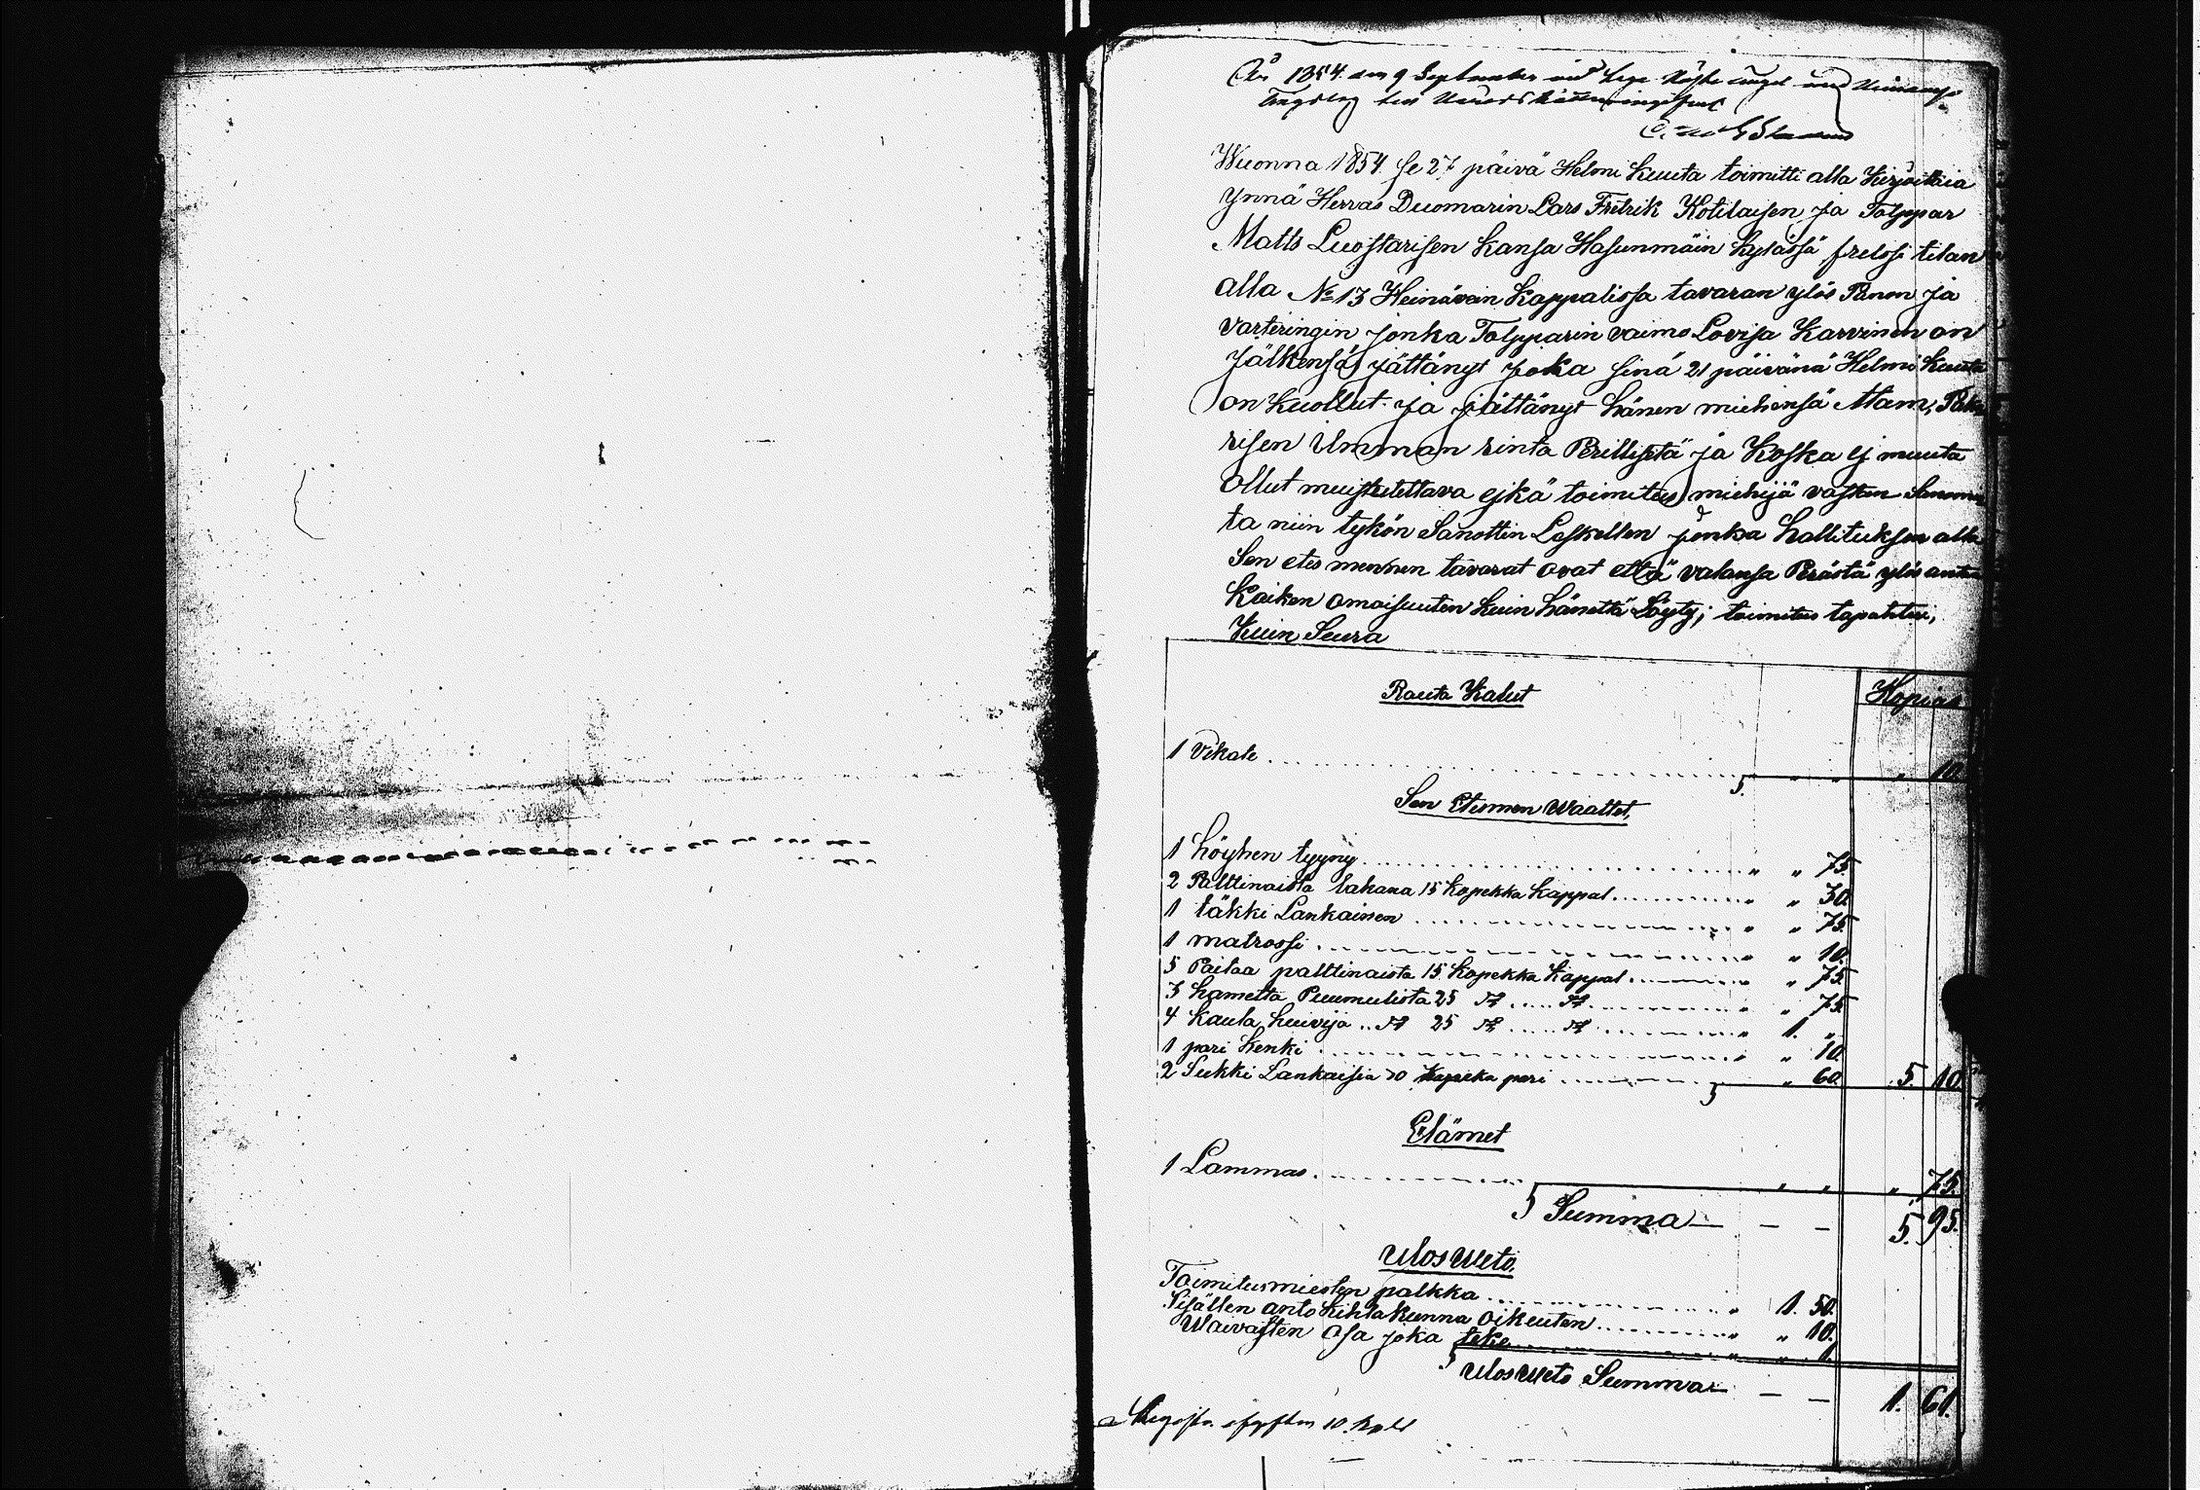 År 1854 den 9 September
Wuonna 1854 se 27 päivä Helmi Kuuta toimitti alla Kirjoitaia
Ynnä Herras Duomarin Lars Fretrik Kotilaisen ja Tolppar
Matts Luostarisen Kansa Hasunmäin Kylässä frelssi tilan
alla No 13 Heinävein Kappalissa tavaran ylös Panon ja
varteringin jonka Tolpparin vaimo Lovisa Karvinen on
Jälkensä jättänyt joka sinä 21 päivänä Helmi Kuuta
on Kuollut ja jättänyt hänen miehensä
risen ilmman rinta Perillisetä ja Koska ej muuta
ollut muistutettava ejkä toimitus miehijä vastan
ta niin tykön Sanottin Leskellen jonka hallituksen alla
Sen etes mennen tavarat ovat että valansa Perästä ylös anta
Kaiken omaisuuten kuin hänettä Löyty; toimitus tapahtui,
Kuin Seura
Rauta Kalut
Kopiak
1 Vikate " " " 10.
Sen Etinnen Waattet,
1 höyhen tyyny " " 75.
2 Palttinaista lakana 15 Kopekka Kappal " " 30.
1 täkki Lankainen " " 75.
1 matrassi " " 10.
5 Paitaa palttinaista 15 Kopekka Kappal " " 75.
3 hametta Puumulista 25 " " 75
4 Kaula huivija 25 " 1. "
1 pari Kenki " " 10.
2 Sukki Lankaisia 30 Kopeka pari " 60. 5. 10.
Elämet
1 Lammas " " " 75.
Summa — — — 5. 95.
Ulos Weto.
Toimitusmiesten palkka " 1. 50.
Sisällen anto Kihlakunna oikeuten " " 10.
Waivasten osa joka teke " " 1.
Ulos Weto Summa — — — 1. 61.
10. Kop